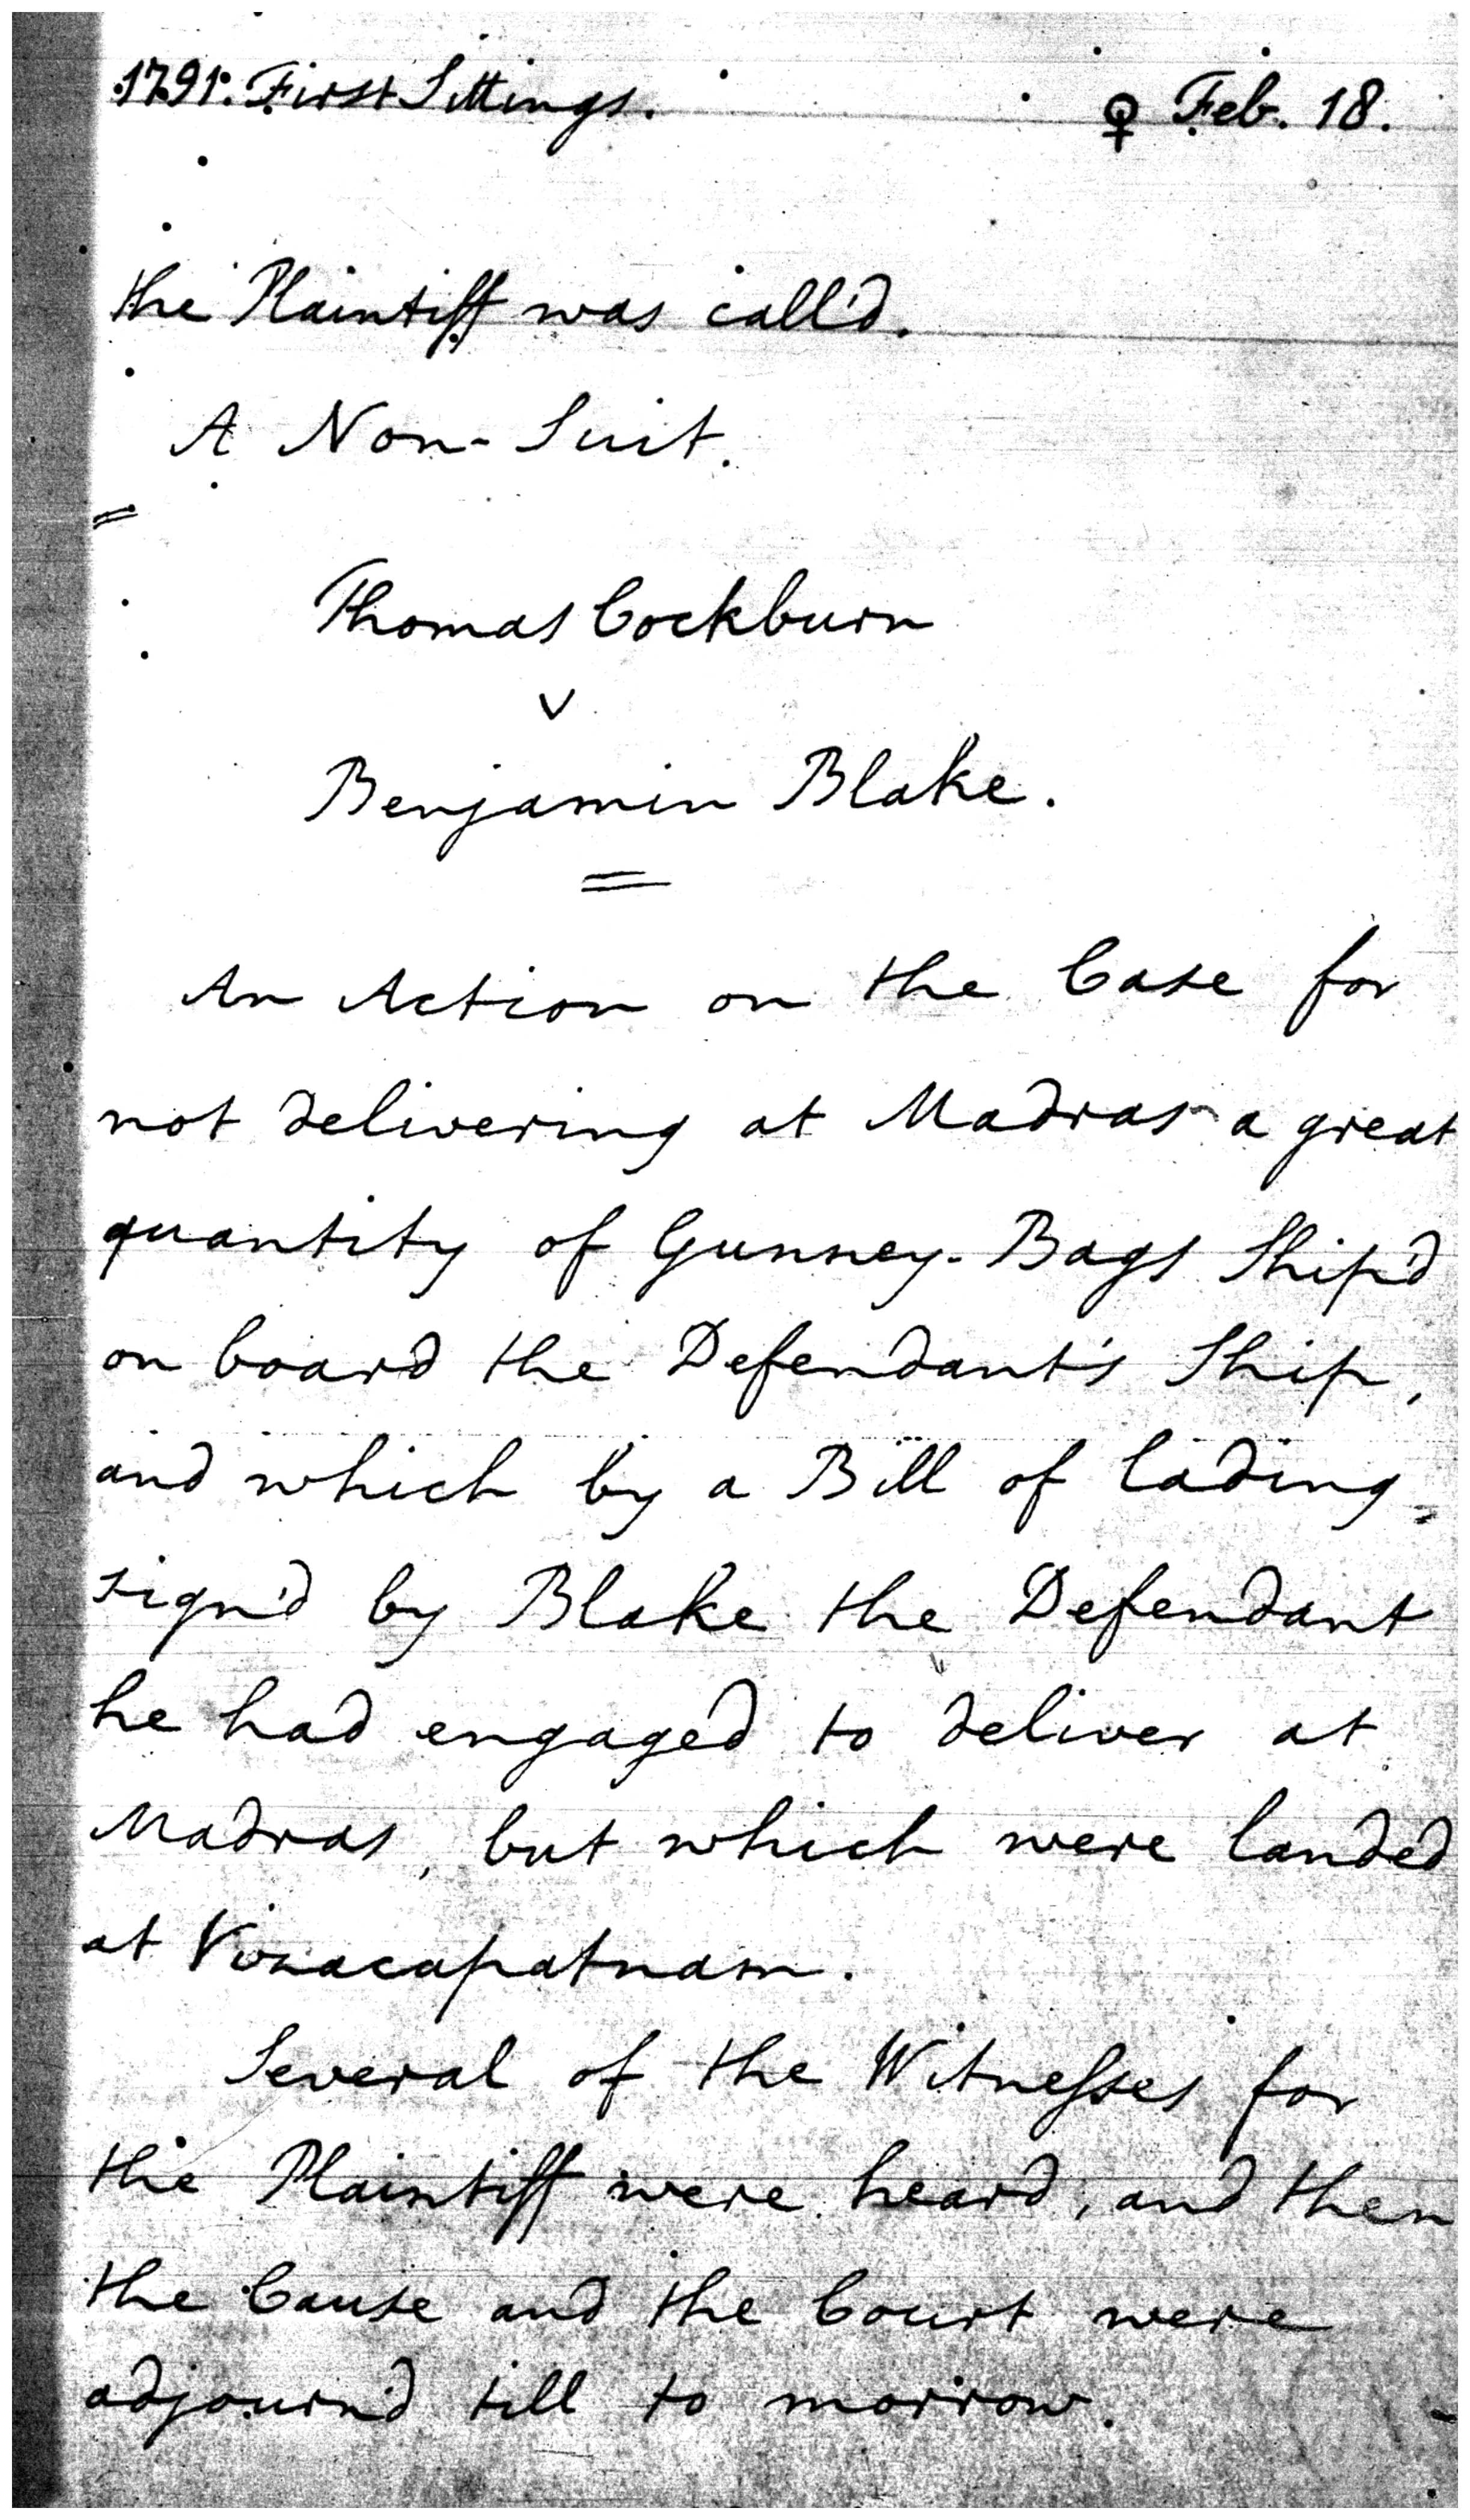 1791. First Sittings. ♀ Feb. 18.
the Plaintiff was call'd.
A Non-Suit.
Thomas Cockburn
v
Benjamin Blake.
An Action on the Case for
not delivering at Madras a great
quantity of Gunney-Bags Ship'd
on board the Defendant's Ship,
and which by a Bill of lading
sign'd by Blake the Defendant
he had engaged to deliver at
Madras, but which were landed
at Vizacapatnam.
Several of the Witnesses for
the Plaintiff were heard, and then
the Cause and the Court were
adjourn'd till to morrow.